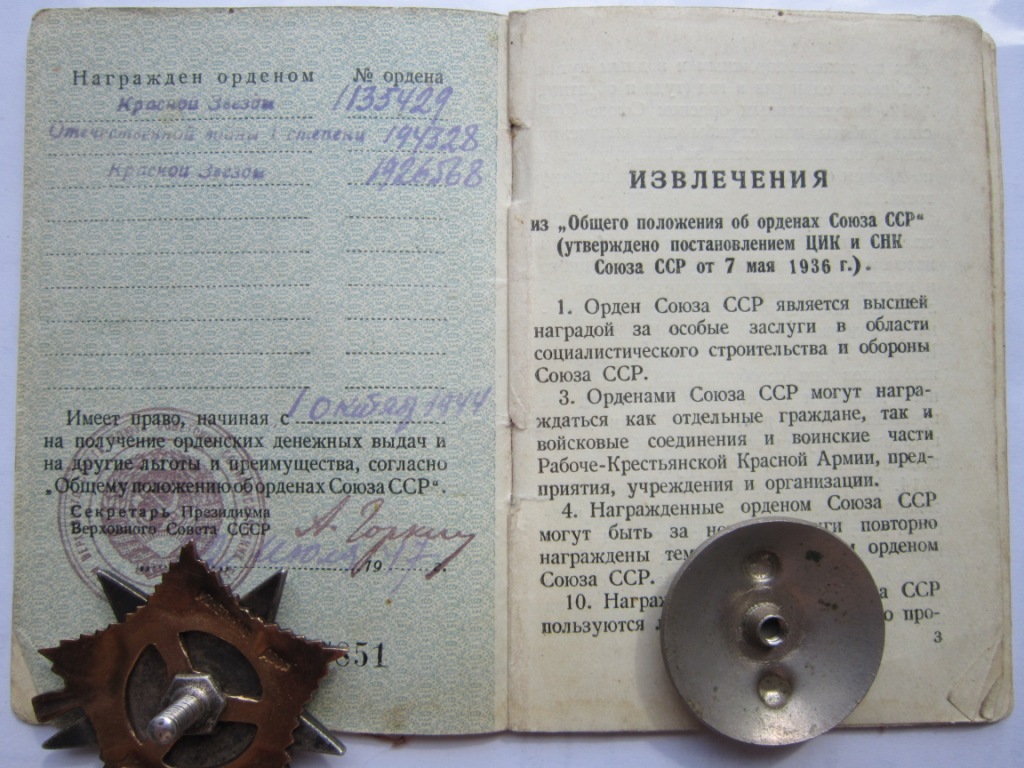 Награжден орденом № ордена
Красной Звезды 1135429
Отечественной войны I степени 194328
Красной Звезды 1926568
Имеет право, начиная с 1 октября 1944
на получение орденских денежных выдач и
на другие льготы и преимущества, согласно
„Общему положению об орденах Союза ССР“.
Секретарь Президиума
Верховного Совета СССР А. Горкин
июля 19 47 г.
851
ИЗВЛЕЧЕНИЯ
из „Общего положения об орденах Союза ССР“
(утверждено постановлением ЦИК и СНК
Союза ССР от 7 мая 1936 г.).
1. Орден Союза ССР является высшей
наградой за особые заслуги в области
социалистического строительства и обороны
Союза ССР.
3. Орденами Союза ССР могут награ-
ждаться как отдельные граждане, так и
войсковые соединения и воинские части
Рабоче-Крестьянской Красной Армии, пред-
приятия, учреждения и организации.
4. Награжденные орденом Союза ССР
могут быть за но ги повторно
награждены тем орденом
Союза ССР.
10. Награж ССР
пользуются про-
3